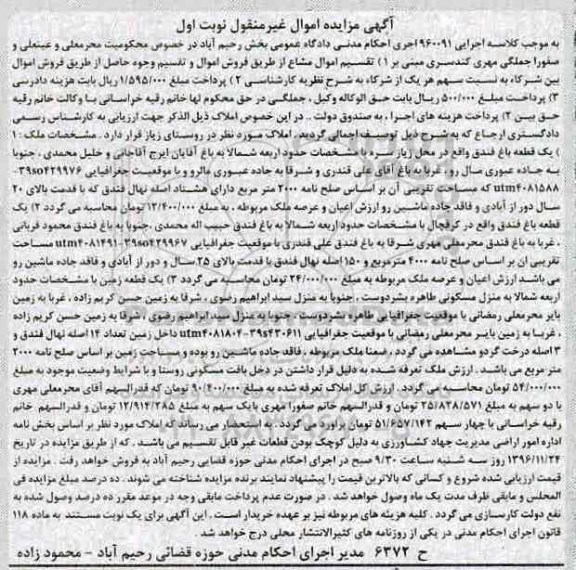 آگهی مزایده اموال غیرمنقول نوبت اول
به موجب کلاسه اجرایی ۹۶۰۰۹۱ اجری احکام مدنی دادگاه عمومی بخش رحیم آباد در خصوص محکومیت محرمعلی و عینعلی و
صفورا جملگی مهری کندسری مبنی بر ۱ ) تقسیم اموال مشاع از طریق فروش اموال و تقسیم وجوه حاصل از طریق فروش اموال
بین شرکاء به نسبت سهم هر یک از شرکاء به شرح نظریه کارشناسی ۲ ) پرداخت مبلغ ۱/۵۹۵/۰۰۰ ریال بابت هزینه دادرسی
۳) پرداخت مبلغ ۵۰۰/۰۰۰ ریال بابت حق الوکاله وکیل ، جملگی در حق محکوم لها خانم رقیه خراسانی با وکالت خانم رقیه
حق بین ۲) پرداخت هزینه های اجرا ، به صندوق دولت .. در این خصوص املاک ذیل الذکر جهت ارزیابی به کارشناس رسمی
دادگستری ارجاع که به شرح ذیل توصیف اجمالی گردید . املاک مورد نظر در روستای زیاز قرار دارد . مشخصات ملک : ۱
) یک قطعه باغ فندق واقع در محل زیاز سره با مشخصات حدود اربعه شمالا به باغ آقایان ایرج آقاجانی و خلیل محمدی ، جنوبا
به جاده عبوری سال رو ، غربا به باغ آقای علی قندری و شرقا به جاده عبوری مالرو و با موقعیت جغرافیایی ۳۹s۰۴۲۹۹۷۶-
utm۴۰۸۱۵۸۸ که مساحت تقریبی آن بر اساس صلح نامه ۲۰۰۰ متر مربع دارای هشتاد اصله نهال فندق که با قدمت بالای ۲۰
سال دور از آبادی و فاقد جاده ماشین رو ارزش اعیان و عرصه ملک مربوطه ، به مبلغ ۱۲/۴۰۰/۰۰۰ تومان محاسبه می گردد ۲) یک
قطعه باغ فندق واقع در گرفچال با مشخصات حدود اربعه شمالا به باغ فندق حبیب اله محمدی ،جنوبا به باغ فندق محمود قربانی
، غربا به باغ فندق محرمعلی مهری شرقا به باغ فندق علی قندری با موقعیت جغرافیایی ۳۹s۰۴۲۹۹۶۷-utm۴۰۸۱۴۹۱ مساحت
تقریبی ان بر اساس صلح نامه ۴۰۰۰ مترمربع و ۱۵۰ اصله نهال فندق با قدمت بالای ۲۵ سال و دور از آبادی و فاقد جاده ماشین رو
می باشد ارزش اعیان و عرصه ملک مربوطه به مبلغ ۲۴/۰۰۰/۰۰۰ تومان محاسبه می گردد ۳) یک قطعه زمین با مشخصات حدود
اربعه شمالا به منزل مسکونی طاهره بشردوست ، جنوبا به منزل سید ابراهیم رضوی ، شرقا به زمین حسن کریم زاده ، غربا به زمین
بایر محرمعلی رمضانی با موقعیت جغرافیایی طاهره بشردوست ، جنوبا به منزل سید ابراهیم رضوی ، شرقا به زمین حسن کریم زاده
، غربا به زمین بایر محرمعلی رمضانی با موقعیت جغرافیایی ۳۹s۴۳۰۶۱۱-utm۴۰۸۱۸۰۴ داخل زمین تعداد ۱۴ اصله نهال فندق و
۳ اصله درخت گردو مشاهده می گردد ، ضمنا ملک مربوطه ، فاقد جاده ماشین رو بوده و مساحت زمین بر اساس صلح نامه ۲۰۰۰
متر مربع می باشد . ارزش ملک تعرفه شده به دلیل قرار داشتن در دخل بافت مسکونی روستا و با شرایط وضعیت موجود به مبلغ
۵۴/۰۰۰/۰۰۰ تومان محاسبه می گردد . ارزش کل املاک تعرفه شده به مبلغ ۹۰/۴۰۰/۰۰۰ تومان که قدرالسهم آقای محرمعلی مهری
با دو سهم به مبلغ ۲۵/۸۲۸/۵۷۱ تومان و قدرالسهم خانم صفورا مهری با یک سهم به مبلغ ۱۲/۹۱۴/۲۸۵ تومان و قدرالسهم خانم
رقیه خراسانی با چهار سهم ۵۱/۶۵۷/۱۴۲ تومان براورد می گردد . به استحضار می رساند که املاک مورد نظر بر اساس بخش نامه
اداره امور اراضی مدیریت جهاد کشاورزی به دلیل کوچک بودن قطعات غیر قابل تقسیم می باشد . که از طریق مزایده در تاریخ
۱۳۹۶/۱۱/۲۴ روز سه شنبه ساعت ۹/۳۰ صبح در اجرای احکام مدنی حوزه قضایی رحیم آباد به فروش خواهد رفت . مزایده از
قیمت ارزیابی شده شروع و کسانی که بالاترین قیمت را پیشنهاد نمایند برنده مزایده شناخته می شوند . ده درصد مبلغ مزایده فی
المجلس و مابقی ظرف مدت یک ماه وصول خواهد شد . در صورت عدم پرداخت مابقی وجه در موعد مقرر ده درصد وصول شده به
نفع دولت کارسازی می گردد . کلیه هزینه های مربوطه نیز بر عهده خریدار است . این آگهی برای یک نوبت مستند به ماده ۱۱۸
قانون اجرای احکام مدنی در یکی از روزنامه های کثیرالانتشار محلی درج خواهد شد .
ح ۶۳۷۲ مدیر اجرای احکام مدنی حوزه قضائی رحیم آباد - محمود زاده